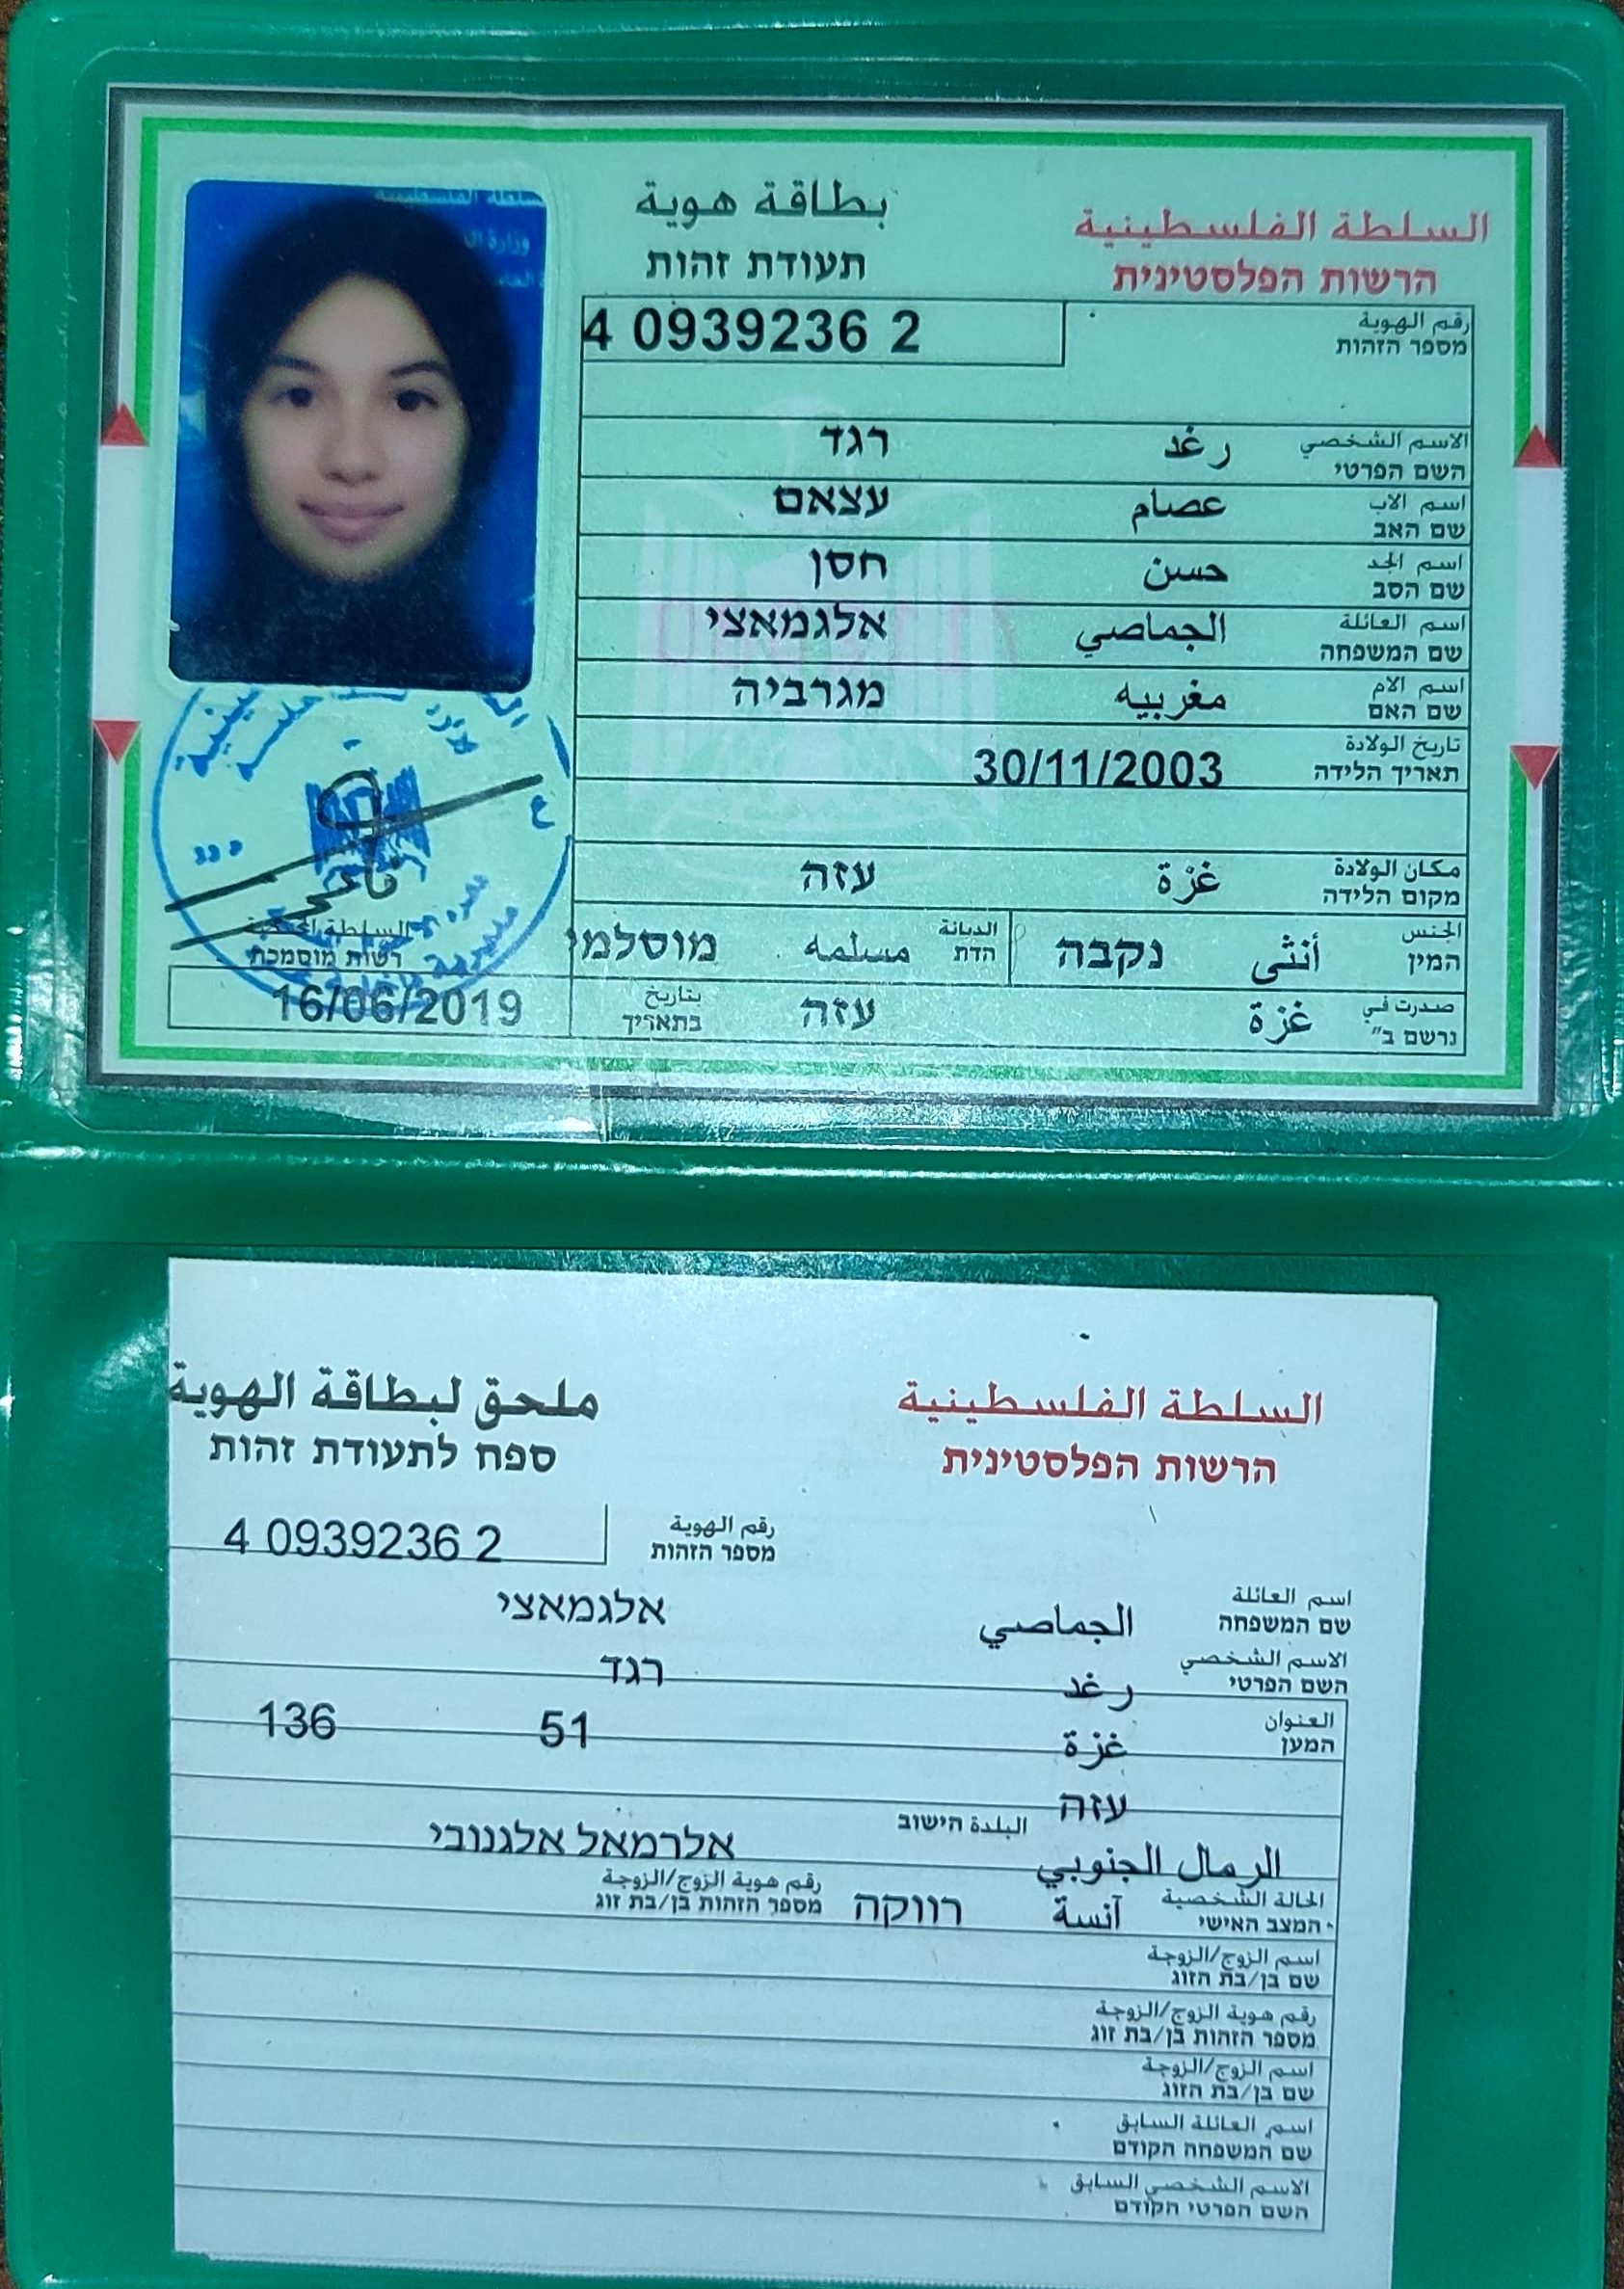 السلطة الفلسطينية
הרשות הפלסטינית
بطاقة هوية
תעודת זהות
رقم الهوية
מספר הזהות
4 0939236 2
الاسم الشخصي
השם הפרטי
رغد רגד
اسم الاب
שם האב
عصام עצאם
اسم الجد
שם הסב
حسن חסן
اسم العائلة
שם המשפחה
الجماصي אלגמאצי
اسم الام
שם האם
مغربيه מגרביה
تاريخ الولادة
תאריך הלידה
30/11/2003
مكان الولادة
מקום הלידה
غزة עזה
الجنس
המין
أنثى נקבה
الديانة
הדת
مسلمه מוסלמי
صدرت في
נרשם ב"
غزة עזה
بتاريخ
בתאריך
רשות מוסמכת
16/06/2019
السلطة الفلسطينية
הרשות הפלסטינית
ملحق لبطاقة الهوية
ספח לתעודת זהות
رقم الهوية
מספר הזהות
4 0939236 2
اسم العائلة
שם המשפחה
الجماصي אלגמאצי
الاسم الشخصي
השם הפרטי
رغد רגד
العنوان
המען
غزة 51 136
עזה
البلدة הישוב
الرمال الجنوبي אלרמאל אלגנובי
الحالة الشخصية
המצב האישי
آنسة רווקה
رقم هوية الزوج/الزوجة
מספר הזהות בן/בת זוג
اسم الزوج/الزوجة
שם בן/בת הזוג
رقم هوية الزوج/الزوجة
מספר הזהות בן/בת זוג
اسم الزوج/الزوجة
שם בן/בת הזוג
اسم العائلة السابق
שם המשפחה הקודם
الاسم الشخصي السابق
השם הפרטי הקודם